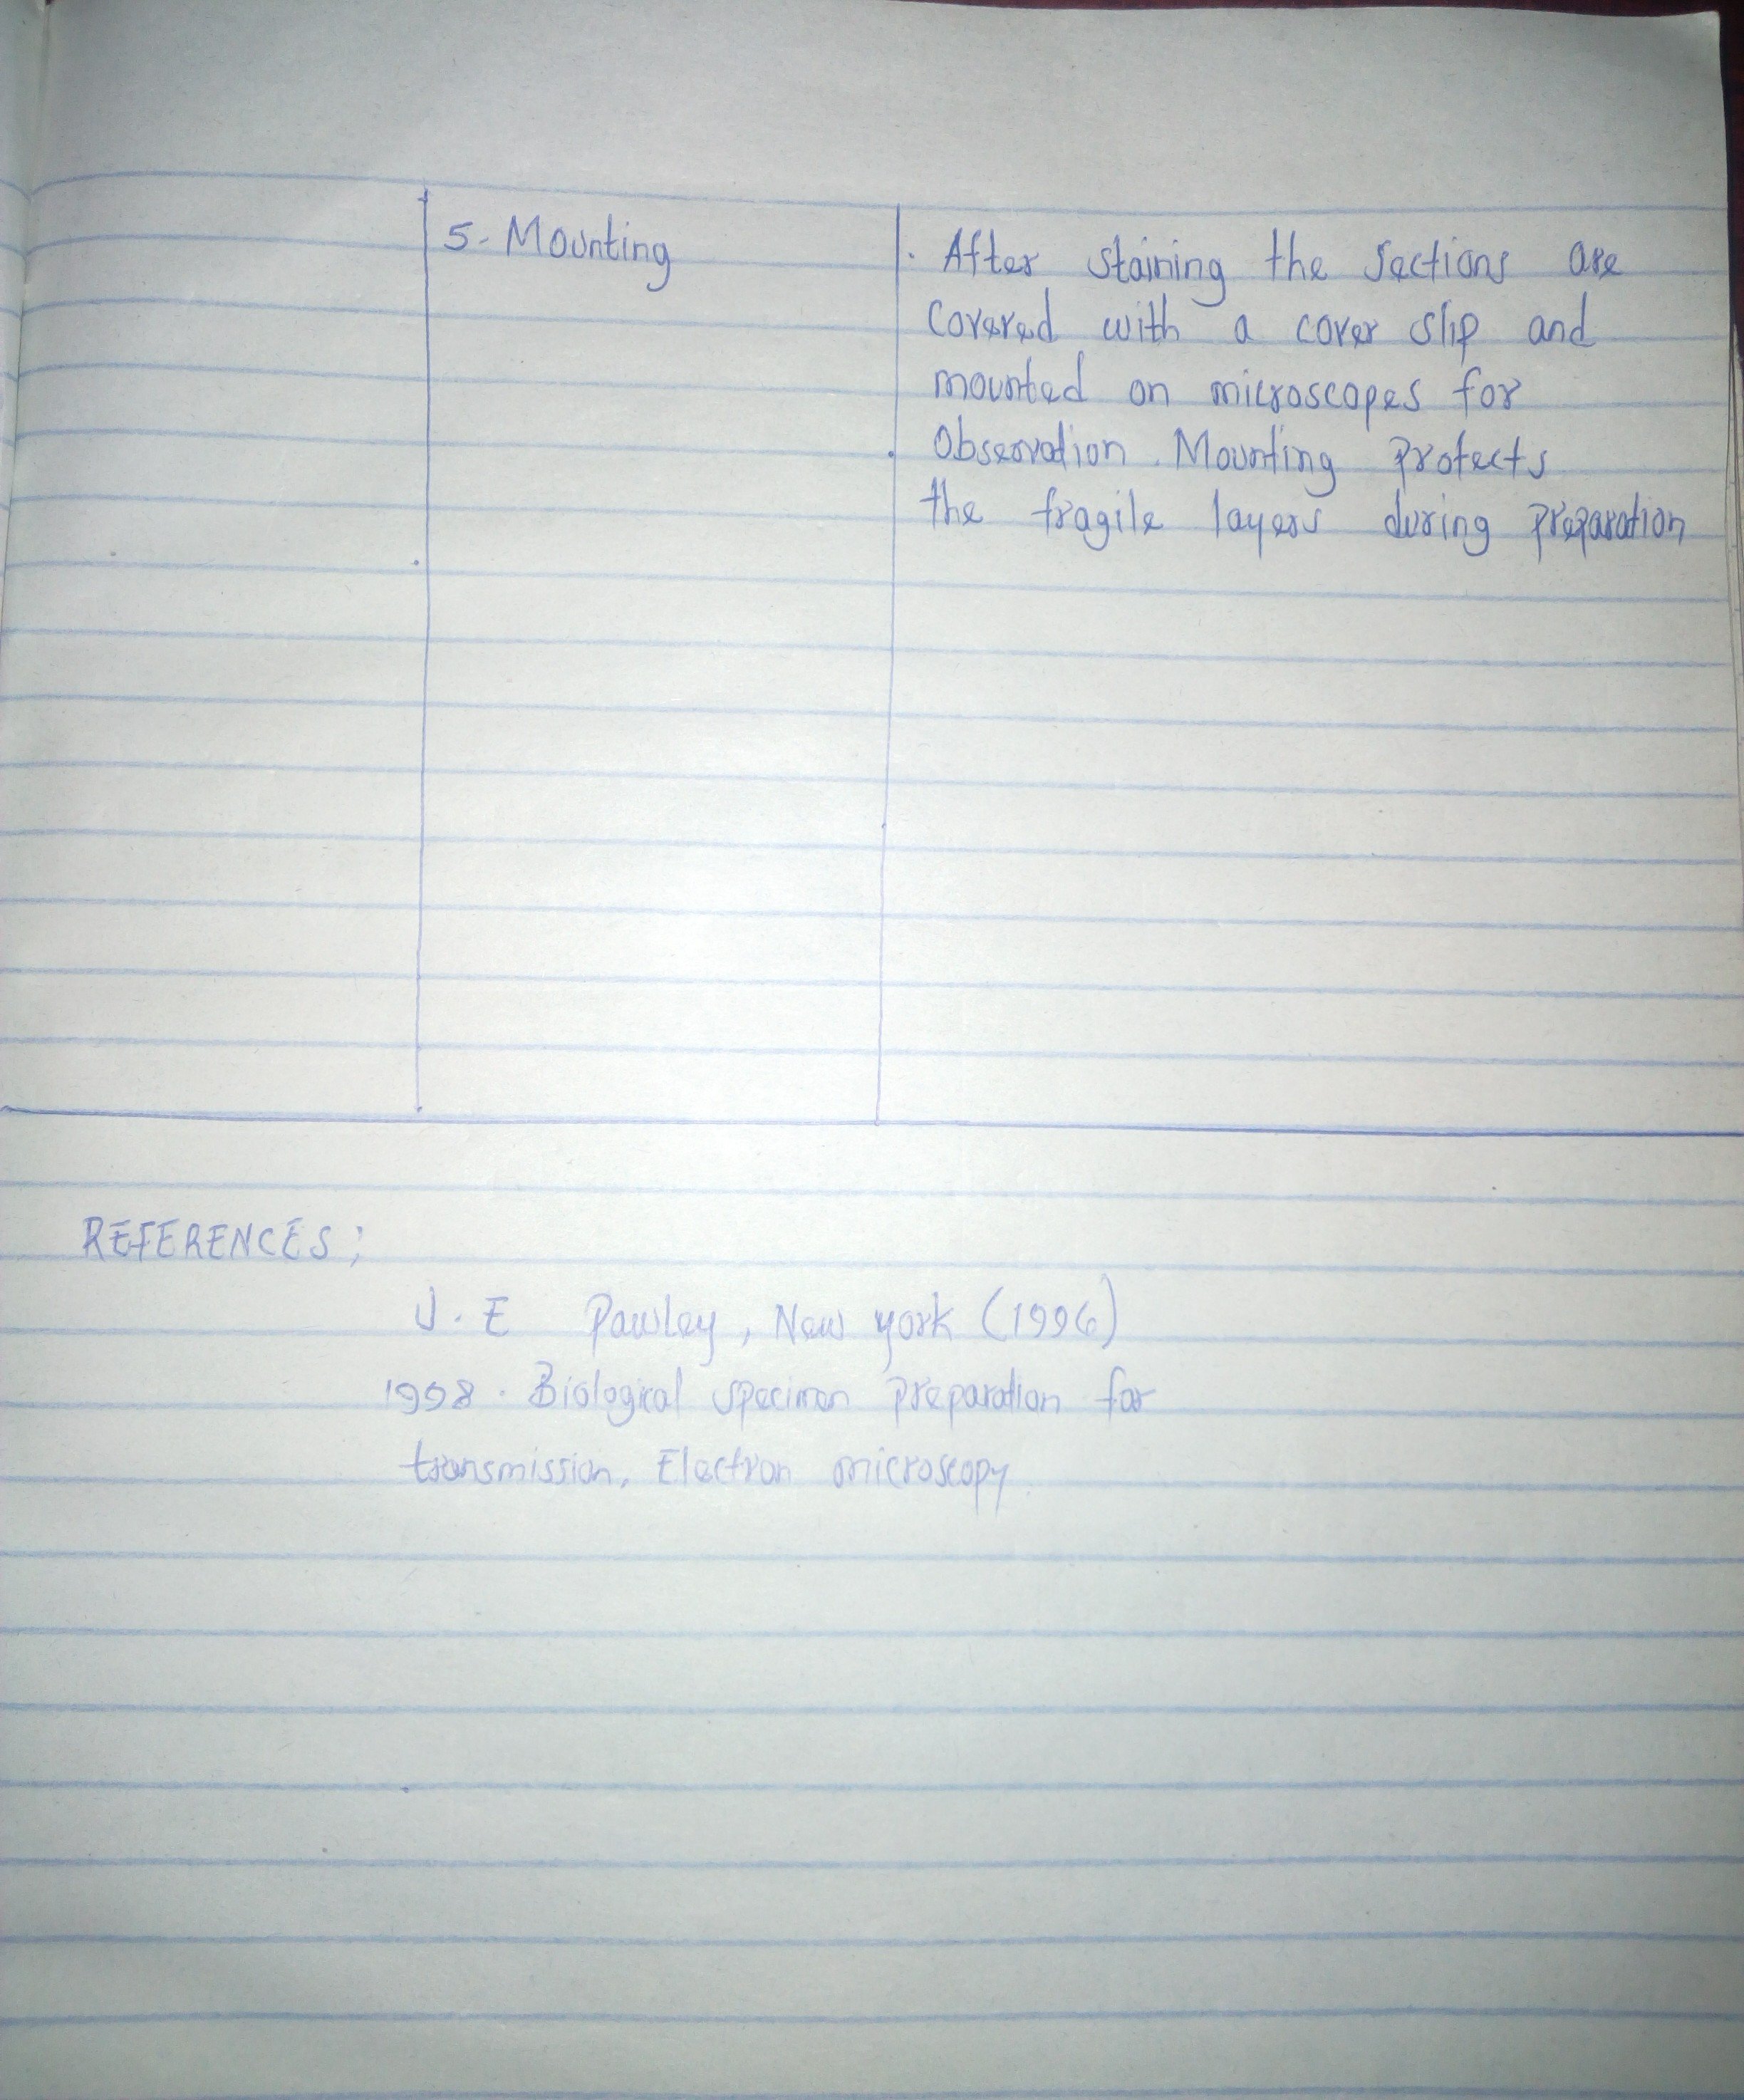 5- Mounting
. After staining the sections are
covered with a cover slip and
mounted on microscopes for
Observation. Mounting protects
the fragile layers during preparation
REFERENCES;
J. E Pawley, New york (1996)
1998. Biological specimen preparation for
transmission, Electron microscopy.